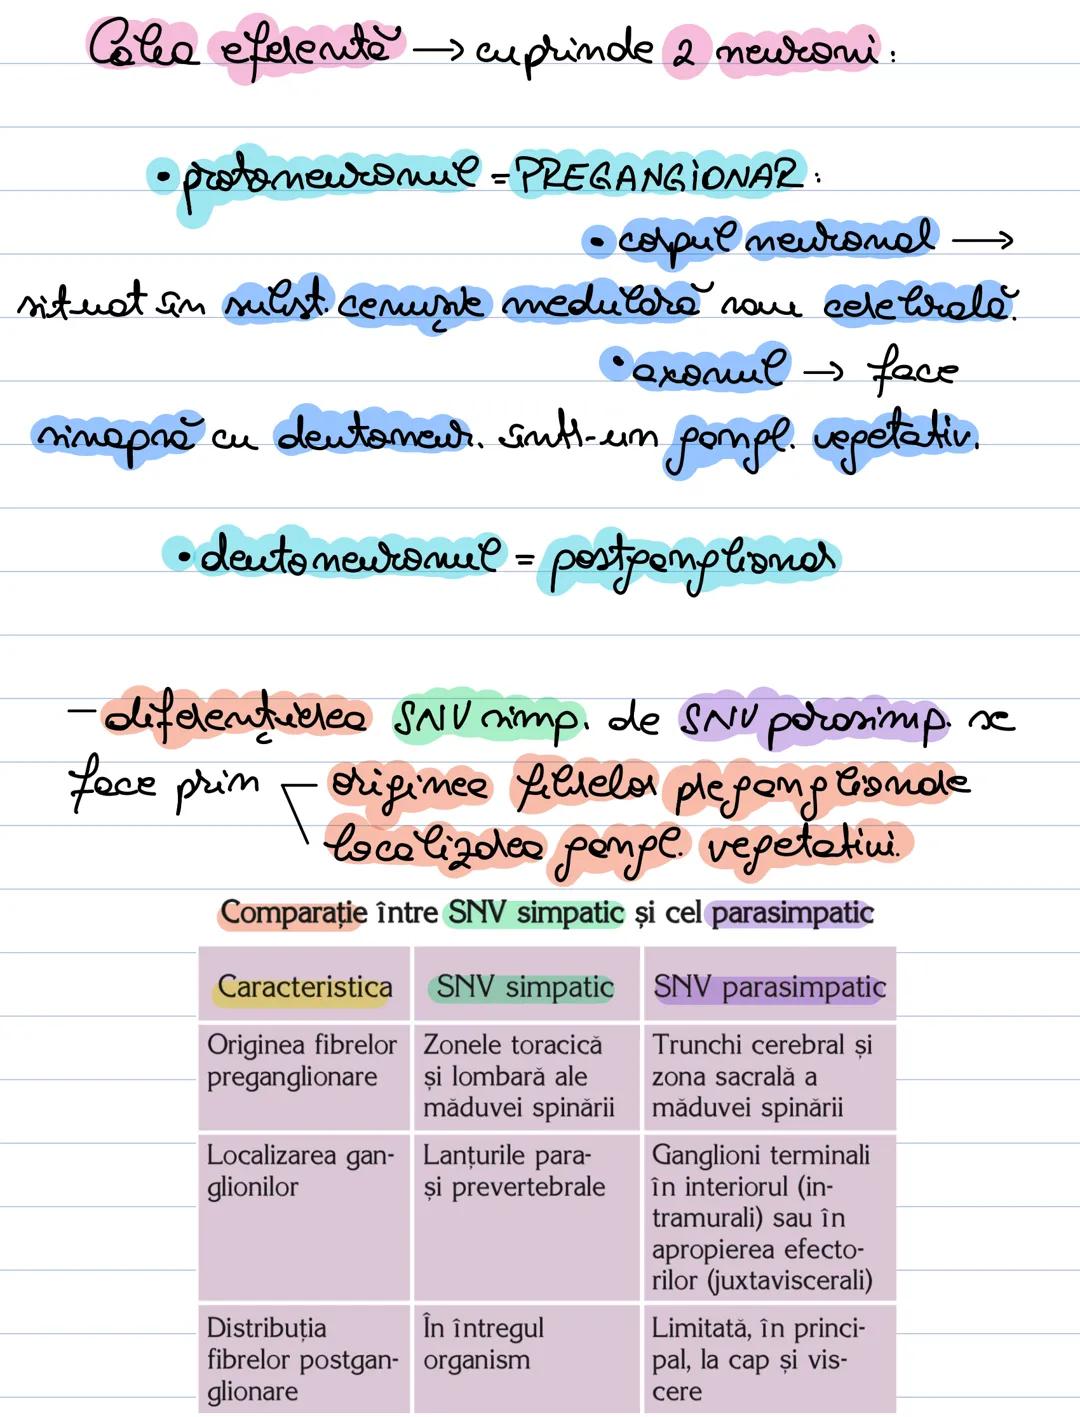 Calea eferentă → cuprinde 2 neuroni:
• protoneuronul = PREGANGIONAR:
• corpul neuronal →
situat în subst. cenușie medulară sau cerebrală.
• axonul → face
sinapsă cu deutoneur. într-un gangl. vegetativ.
• deutoneuronul = postganglionar
- diferențierea SNV simp. de SNV parasimp. se
face prin originea fibrelor preganglionare
localizarea gangl. vegetativi.
Comparație între SNV simpatic și cel parasimpatic
Caracteristica SNV simpatic SNV parasimpatic
Originea fibrelor Zonele toracică Trunchi cerebral și
preganglionare și lombară ale zona sacrală a
măduvei spinării măduvei spinării
Localizarea gan- Lanțurile para- Ganglioni terminali
glionilor și prevertebrale în interiorul (in-
tramurali) sau în
apropierea efecto-
rilor (juxtaviscerali)
Distribuția În întregul Limitată, în princi-
fibrelor postgan- organism pal, la cap și vis-
glionare cere